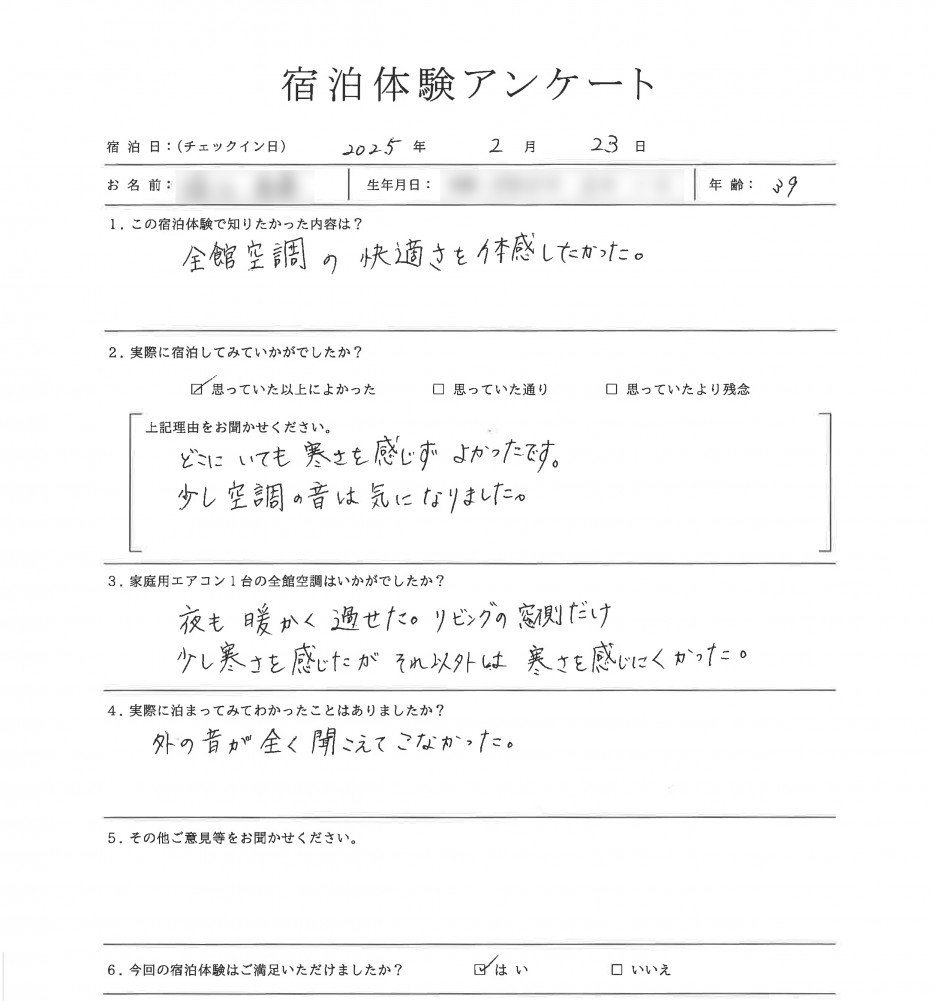 宿泊体験アンケート
宿 泊 日：(チェックイン日) 2025 年 2 月 23 日
お 名 前： 生年月日： 年 齢： 39
1. この宿泊体験で知りたかった内容は？
全館空調の快適さを体感したかった。
2. 実際に宿泊してみていかがでしたか？
☑ 思っていた以上によかった □ 思っていた通り □ 思っていたより残念
上記理由をお聞かせください。
どこにいても寒さを感じずよかったです。
少し空調の音は気になりました。
3. 家庭用エアコン1台の全館空調はいかがでしたか？
夜も暖かく過せた。リビングの窓側だけ
少し寒さを感じたがそれ以外は寒さを感じにくかった。
4. 実際に泊まってみてわかったことはありましたか？
外の音が全く聞こえてこなかった。
5. その他ご意見等をお聞かせください。
6. 今回の宿泊体験はご満足いただけましたか？ ☑ はい □ いいえ